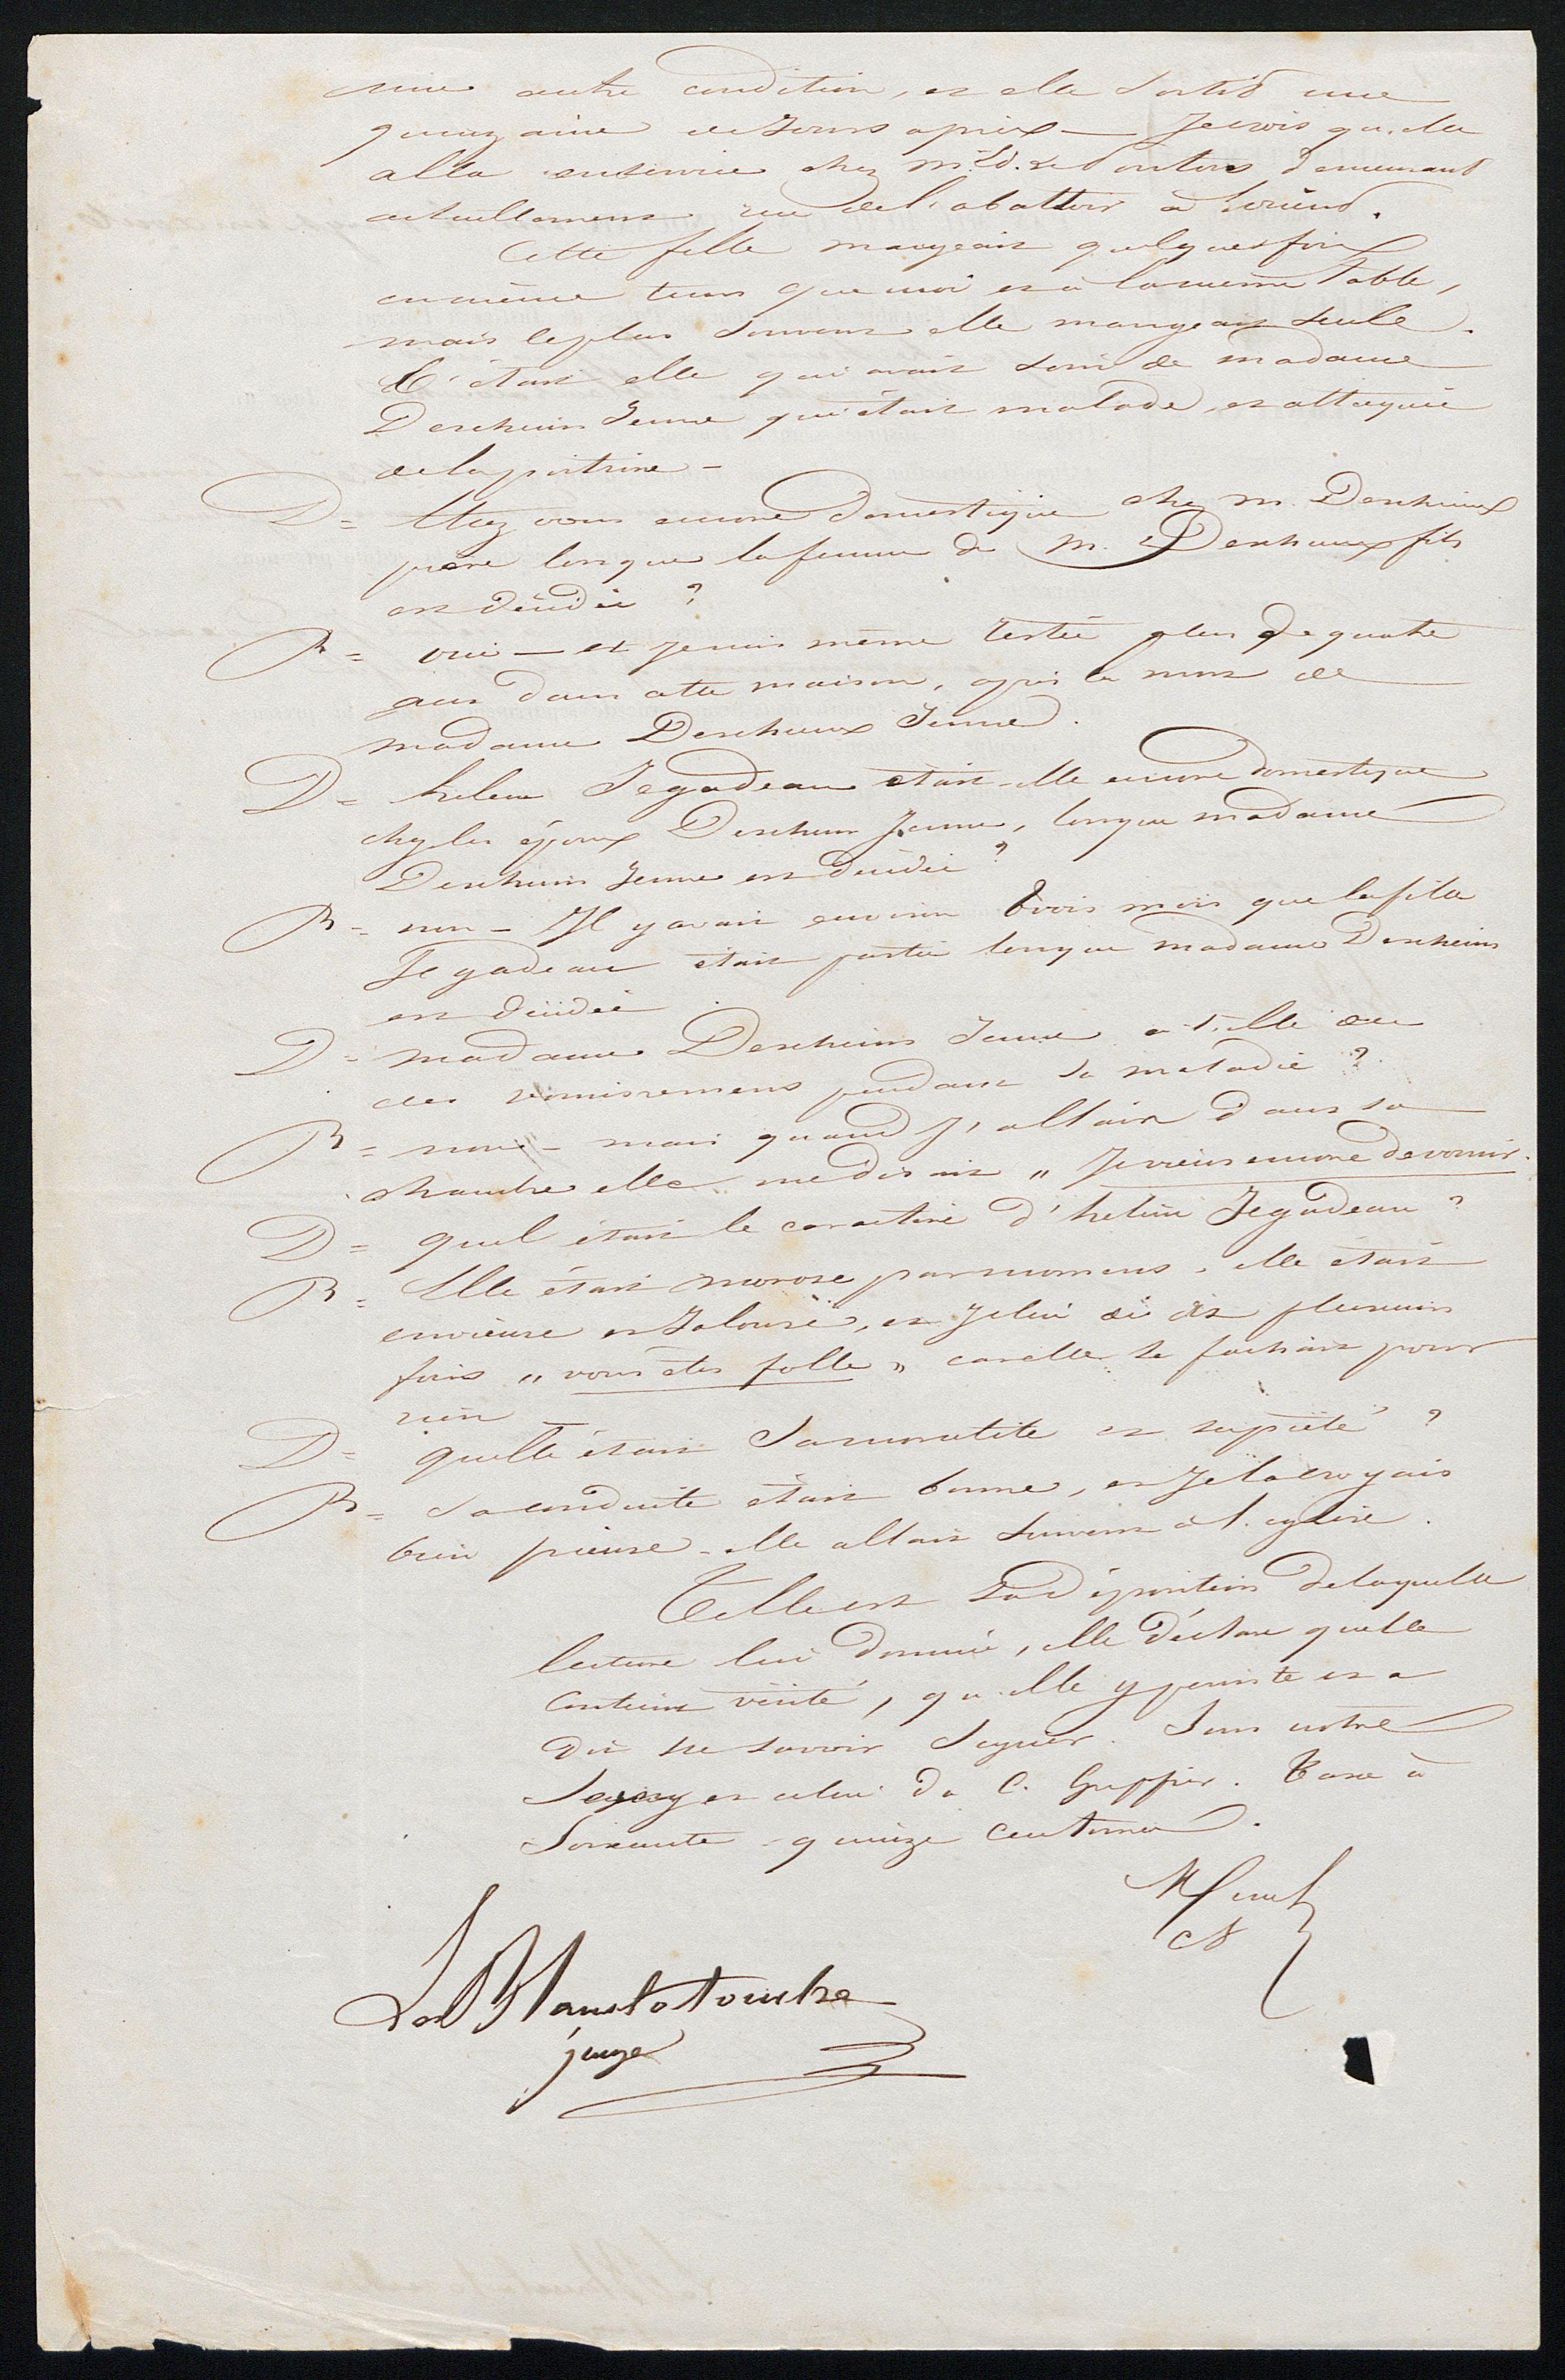 une autre condition, et elle sortit une
quinzaine de Jours après — Je crois qu'elle
alla en service chez demeurant
actuellement rue de l'abattoir à Lorient.
Cette fille mangeait quelques fois
en même tems que moi et à la même table,
mais le plus souvent elle mangeait seule.
C'était elle qui avait soin de madame
Dercheim Jeune qui était malade, et attaquée
de la poitrine —
D = Etiez vous encore domestique chez m. Dercheux
père lorsque la femme de M. Dercheux fils
est décédée ?
R = oui — et je suis même restée plus de quatre
ans dans cette maison, après la mort de
madame Dercheux Jeune.
D = helene Jegadeau était-elle encore domestique
chez les époux Dercheim Jeune, lorsque madame
Dercheim Jeune est décédée ?
R = non — Il y avait environ trois mois que la fille
Jegadeau était partie lorsque madame Dercheim
est décédée
D = madame Dercheim Jeune a-t-elle eu
des vomissemens pendant sa maladie ?
R = non — mais quand j'allais dans sa
chambre elle me disait " Je viens encore de vomir.
D = quel était le caractère d'helène Jegadeau ?
R = Elle était morose par momens. elle était
envieuse et Jalouse, et Je lui ai dit plusieurs
fois " vous êtes folle " car elle se fachait pour
rien
D = quelle était Sa moralité et sa piété ?
R = Sa conduite était bonne, et Je la croyais
bien pieuse — elle allait souvent à l'eglise.
Telle est sa déposition de laquelle
lecture lui donnée, elle déclare qu'elle
contient vérité, qu'elle y persiste et a
dit ne savoir signer. Sous notre
Seing et celui du C. Greffier. Taxe à
Soixante-quinze centimes.
juge